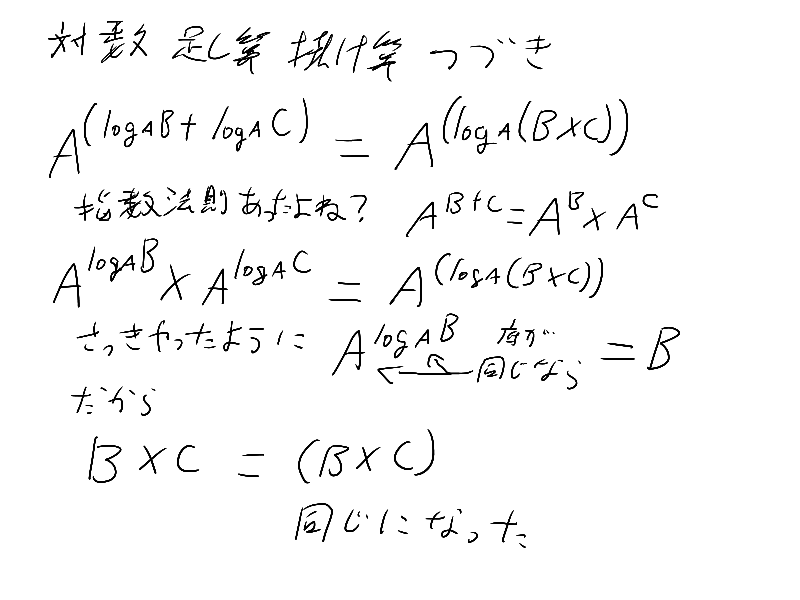 対数 足し算 掛け算 つづき
A^(log_A B + log_A C) = A^(log_A(B×C))
指数法則あったよね? A^(B+C) = A^B × A^C
A^(log_A B) × A^(log_A C) = A^(log_A(B×C))
さっきやったように A^(log_A B) 底が同じなら = B
だから
B×C = (B×C)
同じになった